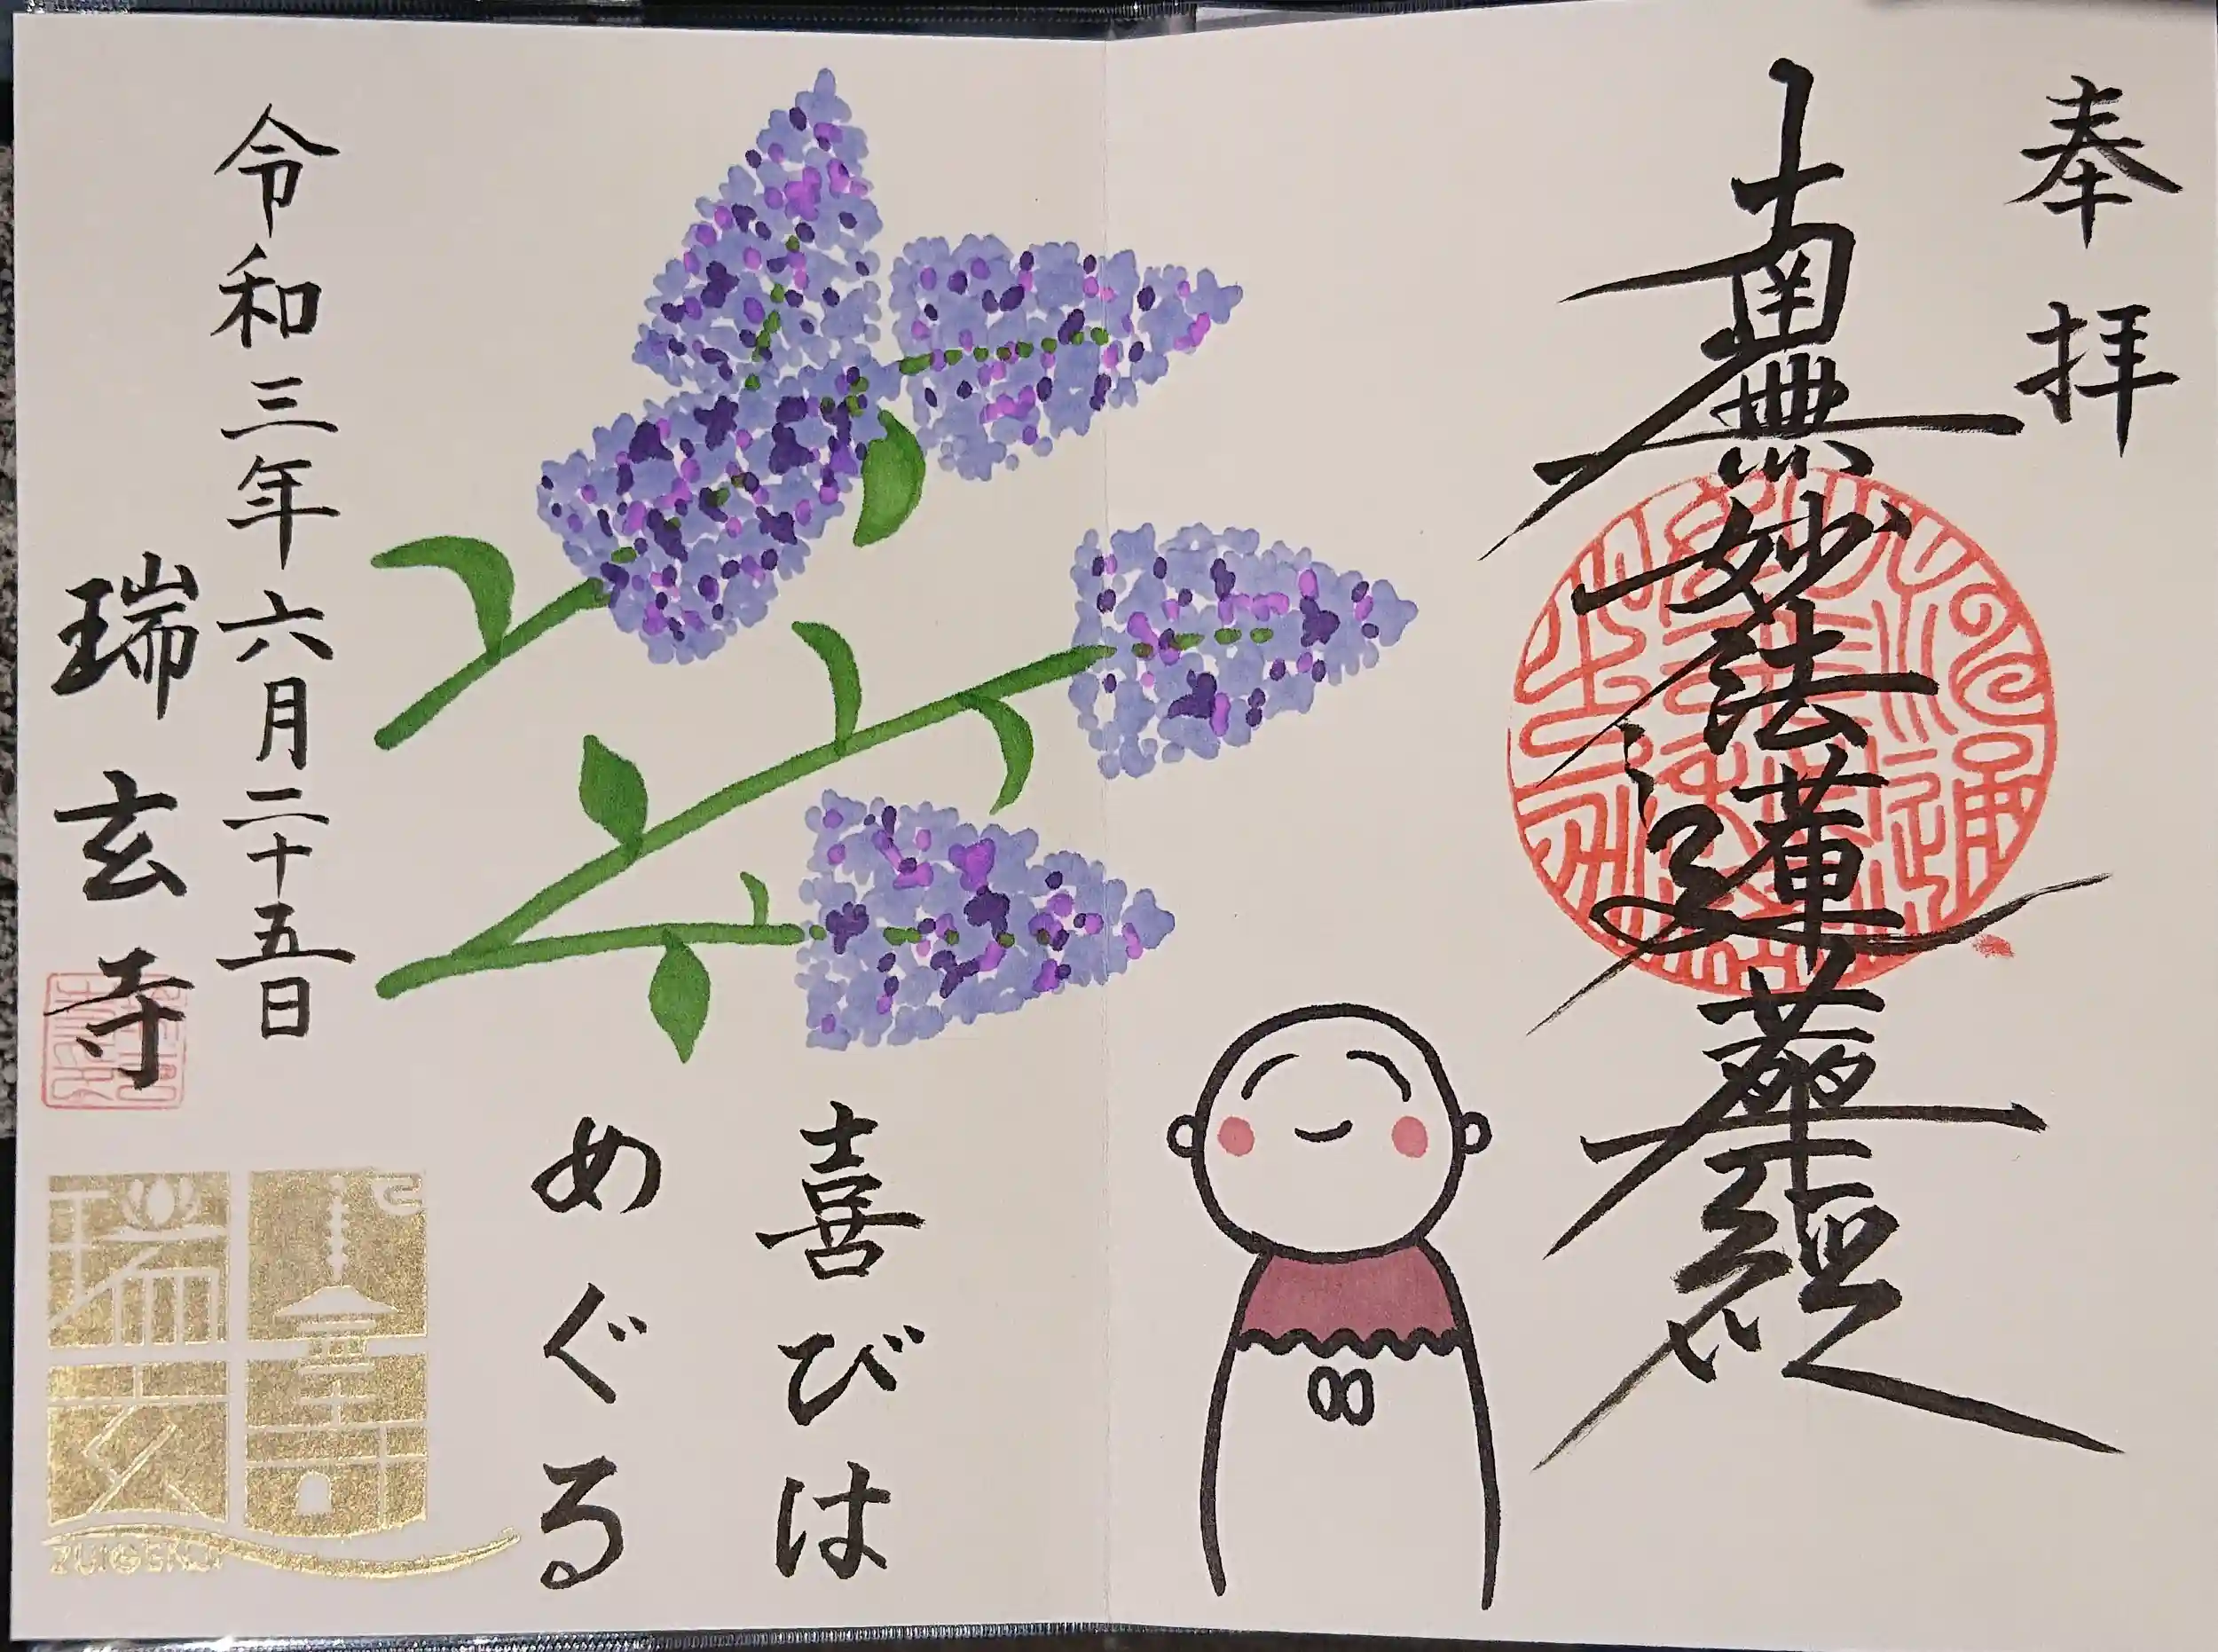 奉拝
南無妙法蓮華経
喜びは
めぐる
令和三年六月二十五日
瑞玄寺
瑞玄寺
ZUIGENJI